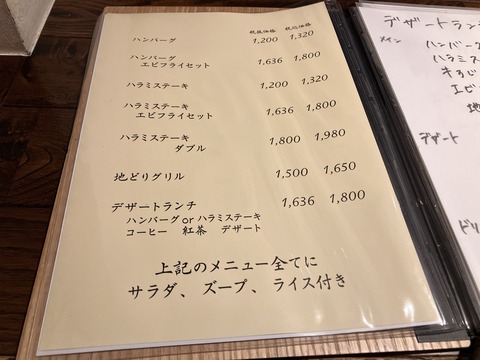 税抜価格 税込価格
ハンバーグ 1,200 1,320
ハンバーグ
エビフライセット 1,636 1,800
ハラミステーキ 1,200 1,320
ハラミステーキ
エビフライセット 1,636 1,800
ハラミステーキ
ダブル 1,800 1,980
地どりグリル 1,500 1,650
デザートランチ 1,636 1,800
ハンバーグ or ハラミステーキ
コーヒー 紅茶 デザート
上記のメニュー全てに
サラダ、スープ、ライス付き
デザートラン
メイン
ハンバー
ハラミス
エビ
地
デザート
ドリ